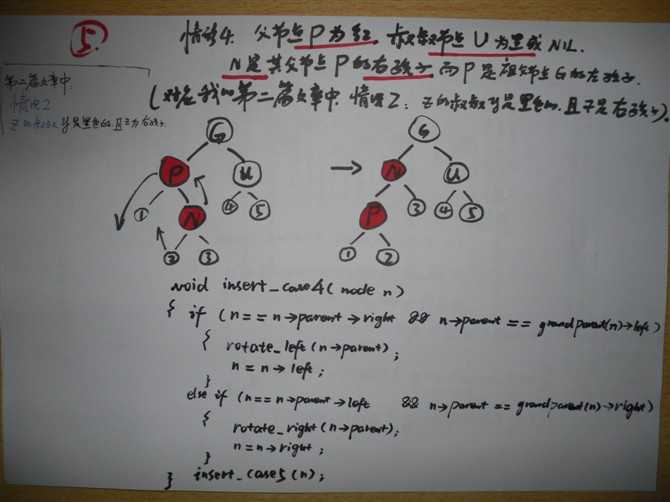 5.
情况4. 父节点P为红, 叔叔节点U为黑或NIL.
N是其父节点P的右孩子, 而P是祖父节点G的左孩子.
(对应我的第二篇文章中, 情况2: z的叔叔y是黑色的, 且z是右孩子).
第二篇文章中:
情况2
z的叔叔y是黑色的,且z为右孩子.
G
P U
1 N 4 5
2 3
G
N U
P 3 4 5
1 2
void insert_case4(node n)
{ if (n == n→parent→right && n→parent == grandparent(n)→left)
{ rotate_left(n→parent);
n = n→left;
}
else if (n == n→parent→left && n→parent == grandparent(n)→right)
{
rotate_right(n→parent);
n = n→right;
}
} insert_case5(n);